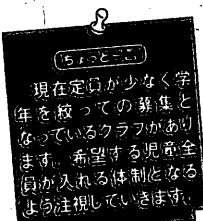 ちょっとここ
現在定員が少なく学
年を絞っての募集と
なっているクラブがあり
ます。希望する児童全
員が入れる体制となる
よう注視していきます。